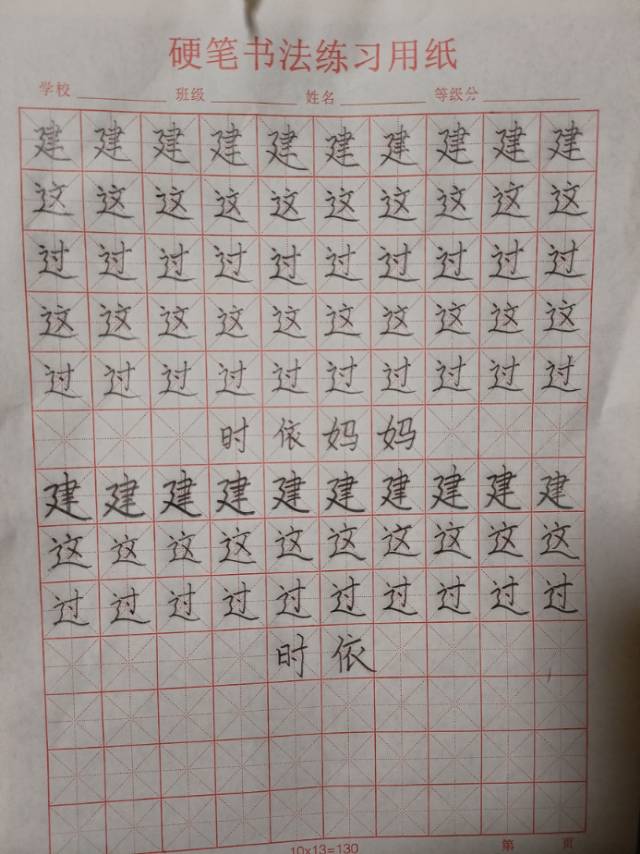 硬笔书法练习用纸
学校 班级 姓名 等级分
建建建建建建建建建建
这这这这这这这这这这
过过过过过过过过过过
这这这这这这这这这这
过过过过过过过过过过
时依妈妈
建建建建建建建建建建
这这这这这这这这这这
过过过过过过过过过过
时依
10×13=130 第 页